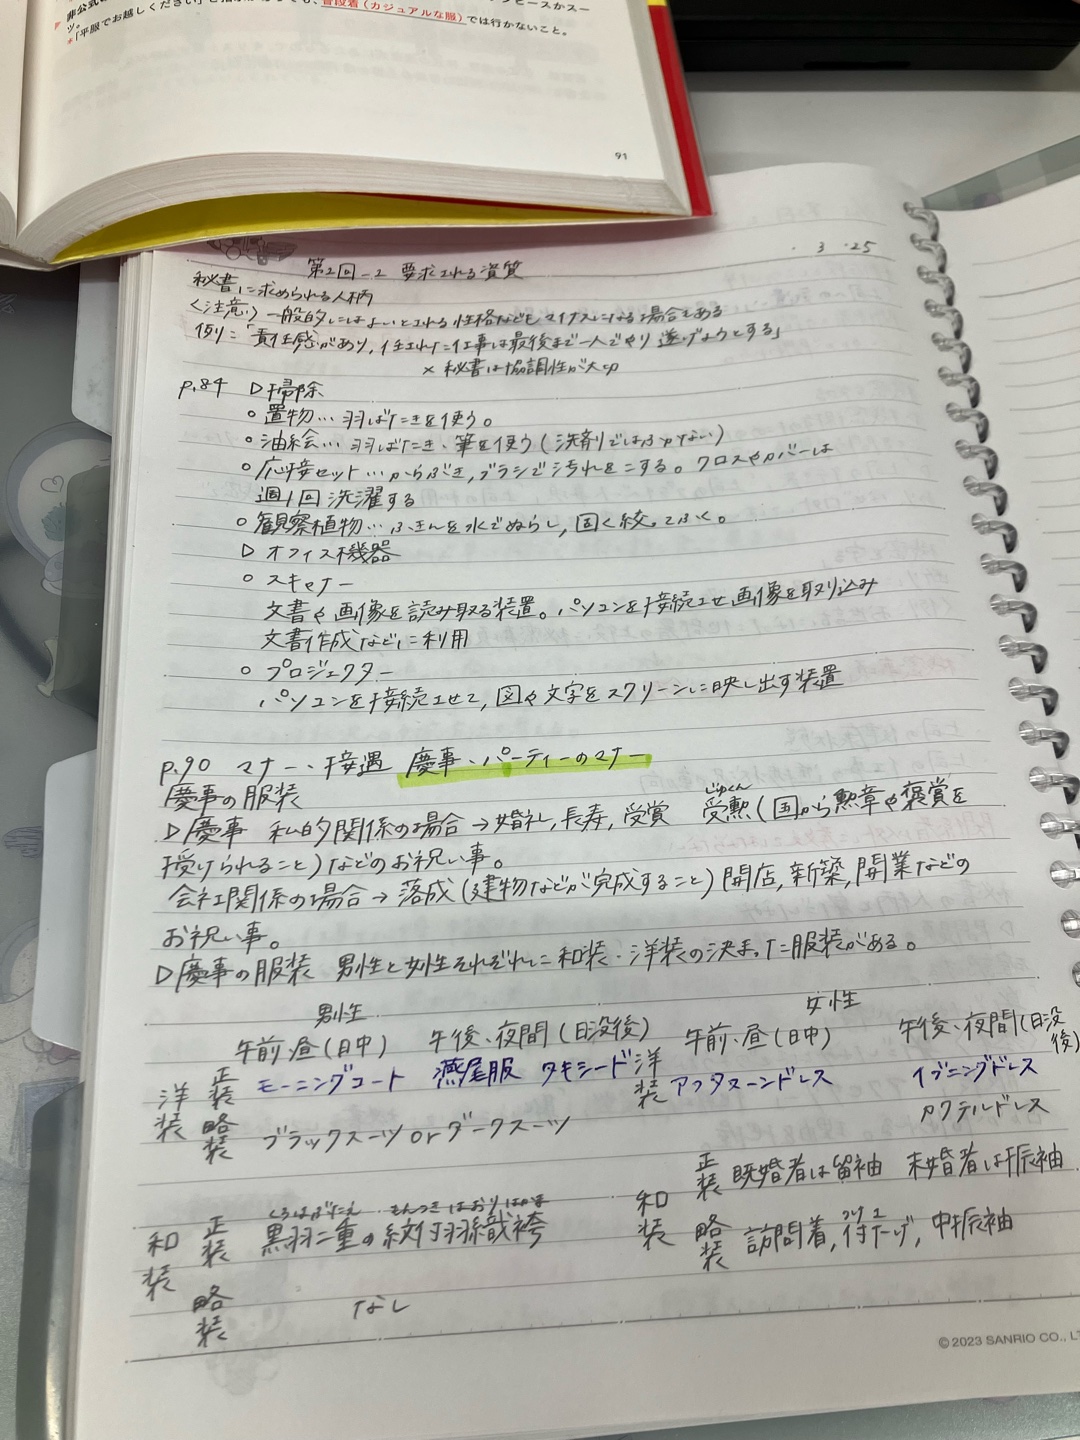 「平服でお越しください」と
普段着(カジュアルな服)では行かないこと。
91
3・25
第2回-2 要求される資質
秘書に求められる人柄
〈注意〉一般的にはよいとされる性格などもマイナスになる場合もある
例)=「責任感があり,任された仕事は最後まで一人でやり遂げようとする」
× 秘書は協調性が大切
p.84 ▷掃除
○置物…羽ばたきを使う。
○油絵…羽ばたき・筆を使う(洗剤ではふかない)
○応接セット…からぶき,ブラシで汚れをこする。クロスやカバーは
週1回洗濯する
○観察植物…ふきんを水でぬらし,固く絞ってふく。
▷オフィス機器
○スキャナー
文書や画像を読み取る装置。パソコンを接続させ画像を取り込み
文書作成などに利用
○プロジェクター
パソコンを接続させて,図や文字をスクリーンに映し出す装置
p.90 マナー・接遇 慶事・パーティーのマナー
慶事の服装
▷慶事 私的関係の場合→婚礼,長寿,受賞 受勲(国から勲章や褒賞を
じゅくん
授けられること)などのお祝い事。
会社関係の場合→落成(建物などが完成すること)開店,新築,開業などの
お祝い事。
▷慶事の服装 男性と女性それぞれに和装・洋装の決まった服装がある。
男性 女性
午前・昼(日中) 午後、夜間(日没後) 午前・昼(日中) 午後、夜間(日没後)
洋装 正装 モーニングコート 燕尾服 タキシード 洋装 アフタヌーンドレス イブニングドレス
略装 ブラックスーツorダークスーツ カクテルドレス
和装 正装 既婚者は留袖 未婚者は振袖
くろはぶたえ もんつき はおりはかま
和装 正装 黒羽二重の紋付羽織袴
つけさ
略装 訪問着,付下げ,中振袖
略装 なし
© 2023 SANRIO CO., LT